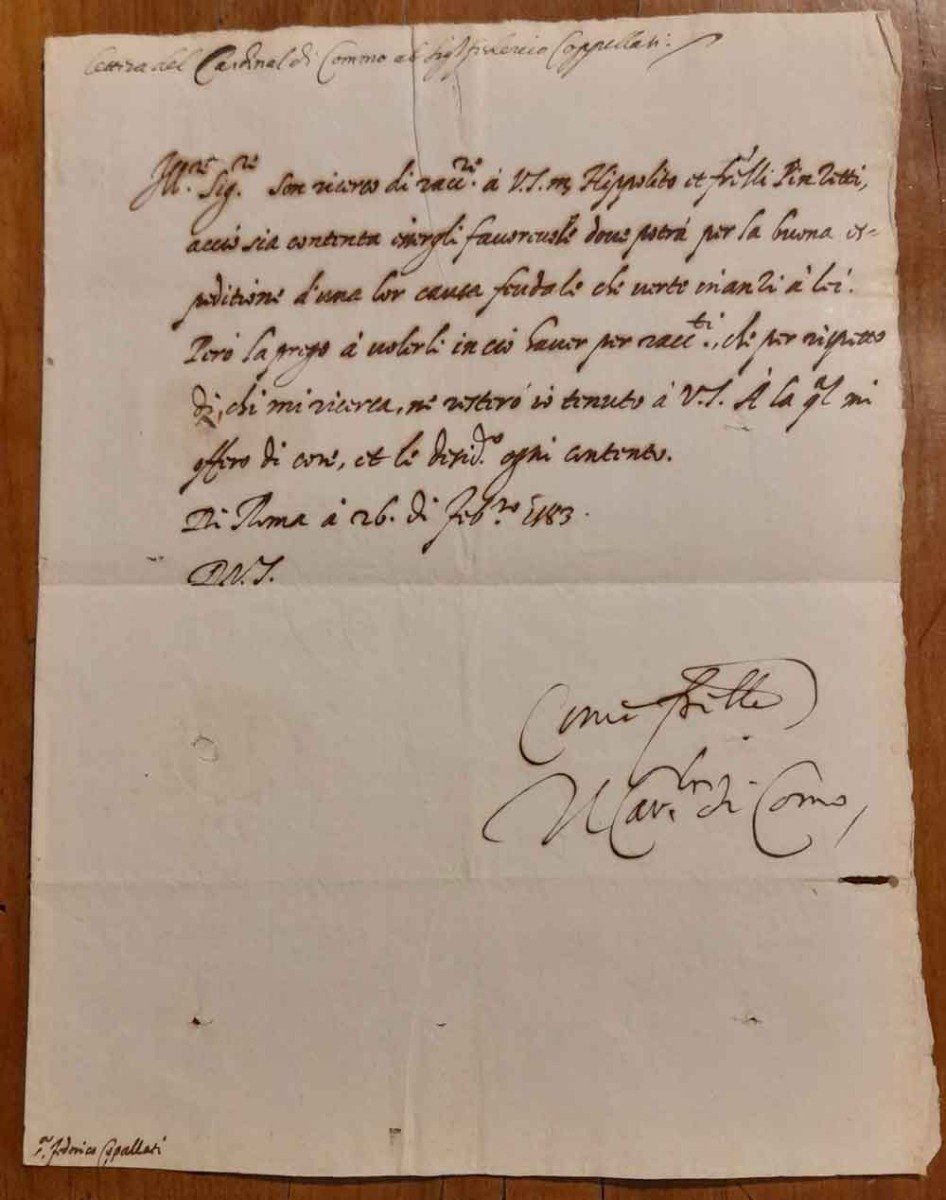 lettera del Cardinal di Commo al Sig.r Federico Coppellati.
Ill.re Sig.re Son ricerco di racc.re à V.S. m. Hippolito et fr̃elli Pinzetti,
acciò sia contenta essergli favorevole dove potrà per la buona es=
peditione d'una lor causa feudale che verte inanzi à lei.
Però la prego à volerli in ciò haver per racc.ti, che per rispetto
di chi mi ricerca, ne resterò io tenuto à V.S. À la ql mi
offero di core, et le desid.o ogni contento.
Di Roma à 26. di Feb.ro 1583.
D.V.S.
Come fr̃ello
Il Car.l di Como,
s.r Federico Capallati